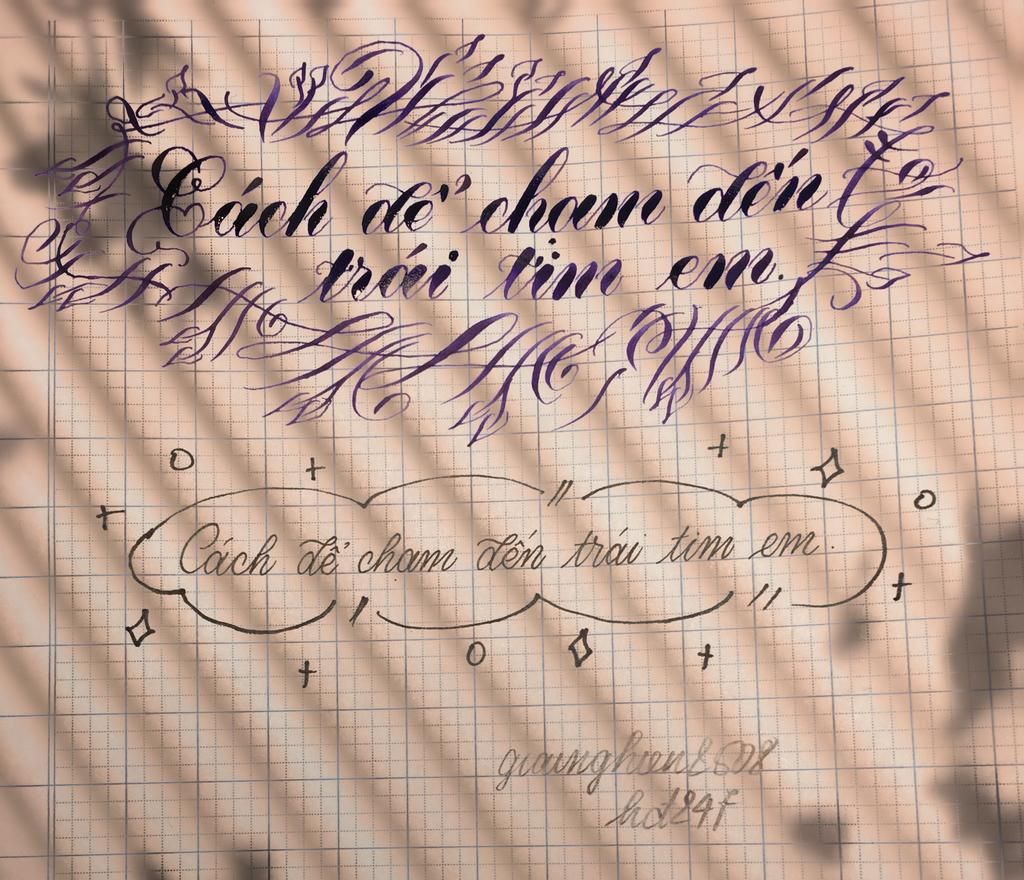 Cách để cham đến
trái tim em.
Cách để cham đến trái tim em.
hd24f